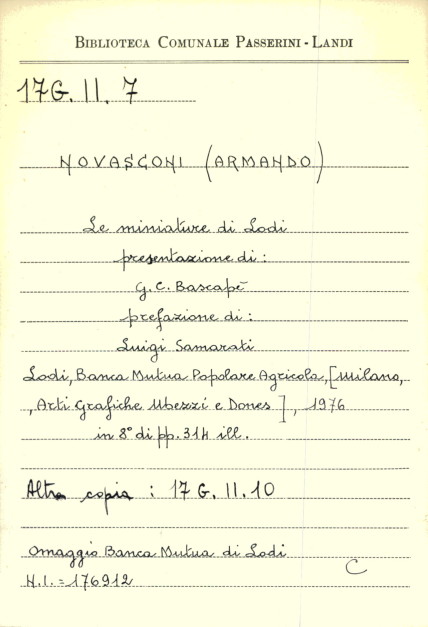 BIBLIOTECA COMUNALE PASSERINI-LANDI
17G. II. 7
NOVASCONI (ARMANDO)
Le miniature di Lodi
presentazione di:
G. C. Bascapè
prefazione di:
Luigi Samarati
Lodi, Banca Mutua Popolare Agricola, [Milano,
, Arti Grafiche Ubezzi e Dones], 1976
in 8° di pp. 314 ill.
Altra copia : 17 G. II. 10
Omaggio Banca Mutua di Lodi
C
N.I. = 176912